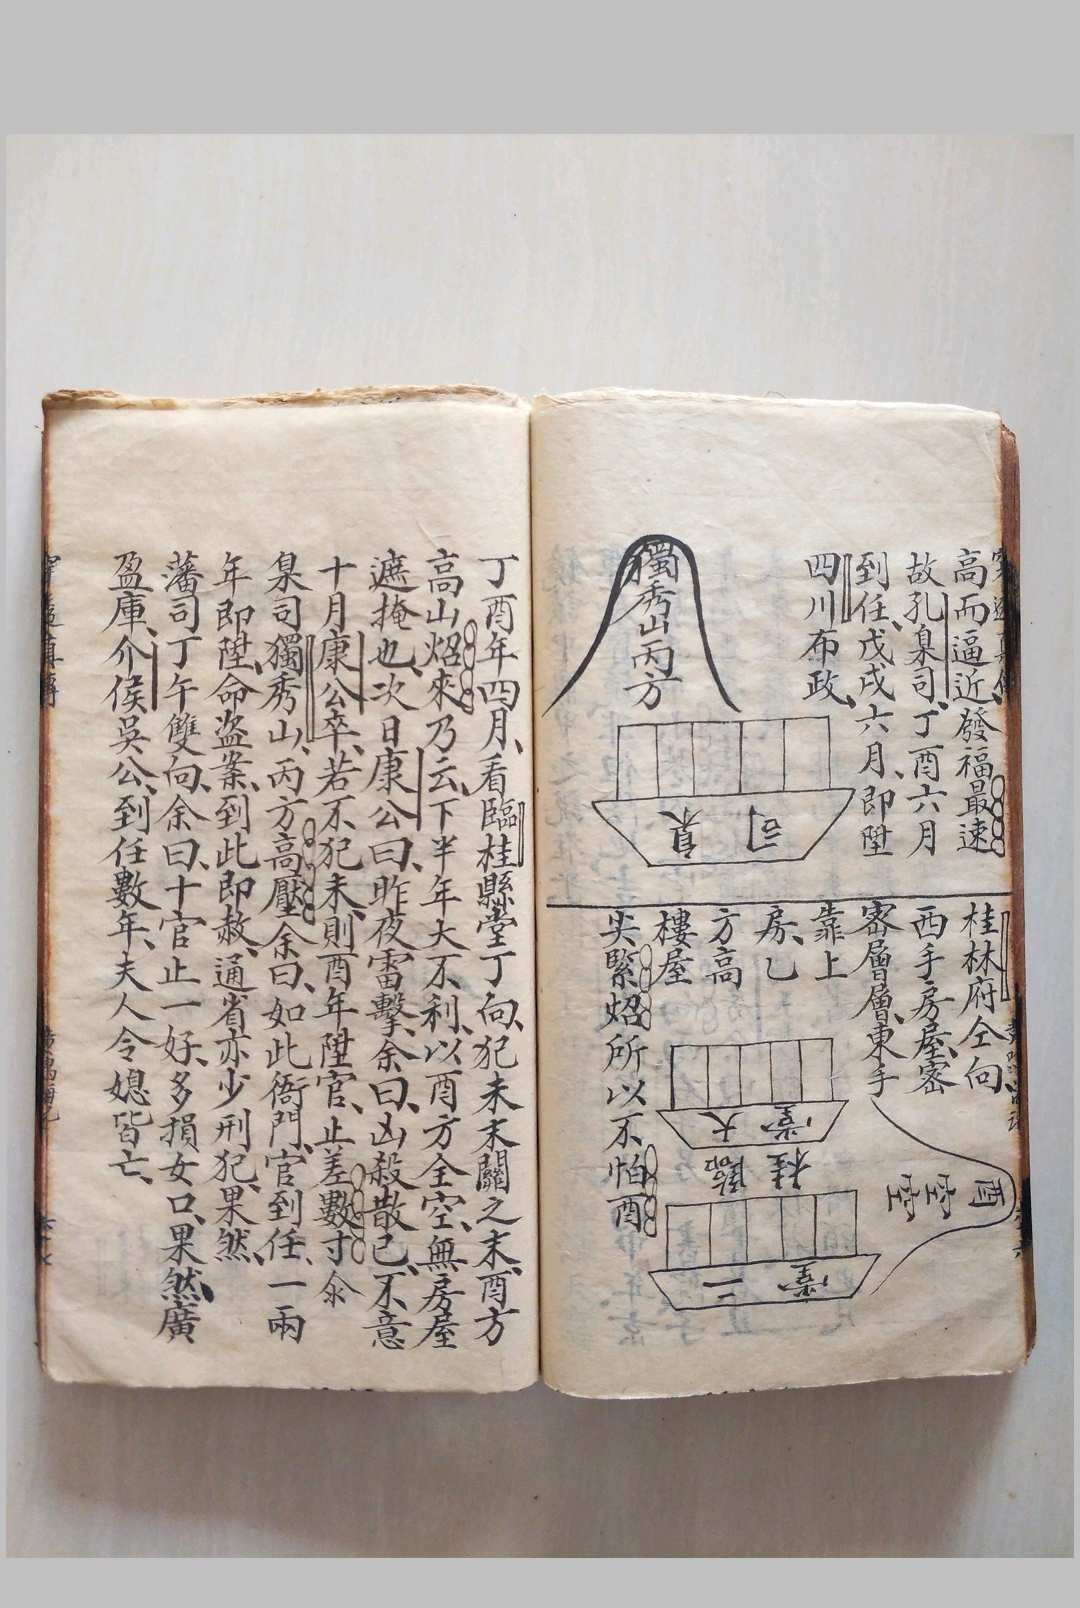 高而逼近發福最速
故孔臬司丁酉六月
到任戊戌六月即陞
四川布政
獨秀山丙方
臬司
桂林府仝向
西手房屋密
密層層東手
靠上
房乙
方高
樓屋
尖緊炤所以不怕酉
大堂
臨桂
二堂
酉空空
丁酉年四月看臨桂縣堂丁向犯未未關之未酉方
高山炤來乃云下半年大不利以酉方全空無房屋
遮掩也次日康公曰昨夜雷擊余曰凶殺散已不意
十月康公卒若不犯未則酉年陞官止差數寸
臬司獨秀山丙方高壓余曰如此衙門官到任一兩
年即陞命盜案到此即赦通省亦少刑犯果然
藩司丁午雙向余曰十官止一好多損女口果然廣
盈庫介侯吳公到任數年夫人令媳皆亡